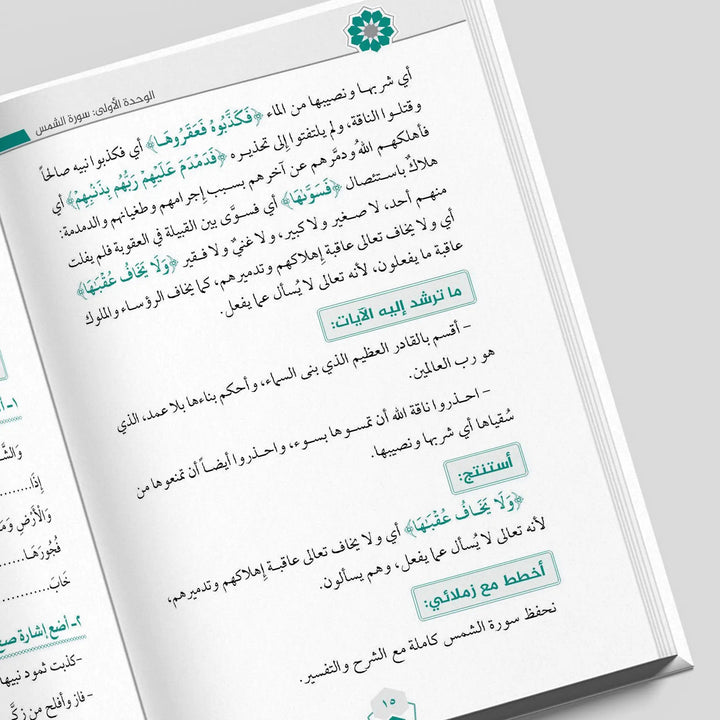 الوحدة الأولى: سورة الشمس
أي شربها ونصيبها من الماء ﴿فَكَذَّبُوهُ فَعَقَرُوهَا﴾ أي فكذبوا نبيه صالحاً
وقتلوا الناقة، ولم يلتفتوا إلى تحذيره ﴿فَدَمْدَمَ عَلَيْهِمْ رَبُّهُم بِذَنبِهِمْ﴾ أي
فأهلكهم اللهُ ودمَّرهم عن آخرهم بسبب إجرامهم وطغيانهم والدمدمة:
هلاكٌ باستئصال ﴿فَسَوَّىٰهَا﴾ أي فسوَّى بين القبيلة في العقوبة فلم يفلت
منهم أحد، لا صغير ولا كبير، ولا غنيٌّ ولا فقير ﴿وَلَا يَخَافُ عُقْبَٰهَا﴾
أي ولا يخاف تعالى عاقبة إهلاكهم وتدميرهم، كما يخاف الرؤساء والملوك
عاقبة ما يفعلون، لأنه تعالى لا يُسأل عما يفعل.
ما ترشد إليه الآيات:
- أقسم بالقادر العظيم الذي بنى السماء، وأحكم بناءها بلا عمد، الذي
هو رب العالمين.
- احذروا ناقة الله أن تمسوها بسوء، واحذروا أيضاً أن تمنعوها من
سُقياها أي شربها ونصيبها.
أستنتج:
﴿وَلَا يَخَافُ عُقْبَٰهَا﴾ أي ولا يخاف تعالى عاقبة إهلاكهم وتدميرهم،
لأنه تعالى لا يُسأل عما يفعل، وهم يسألون.
أخطط مع زملائي:
نحفظ سورة الشمس كاملة مع الشرح والتفسير.
١٥
١- أ
إِذَا..........
وَالْأَرْضِ وَمَ
فُجُورَهَا...
خَابَ..........
٢- أضع إشارة صح
-كذبت ثمود نبيها
- فاز وأفلح من زكَّ